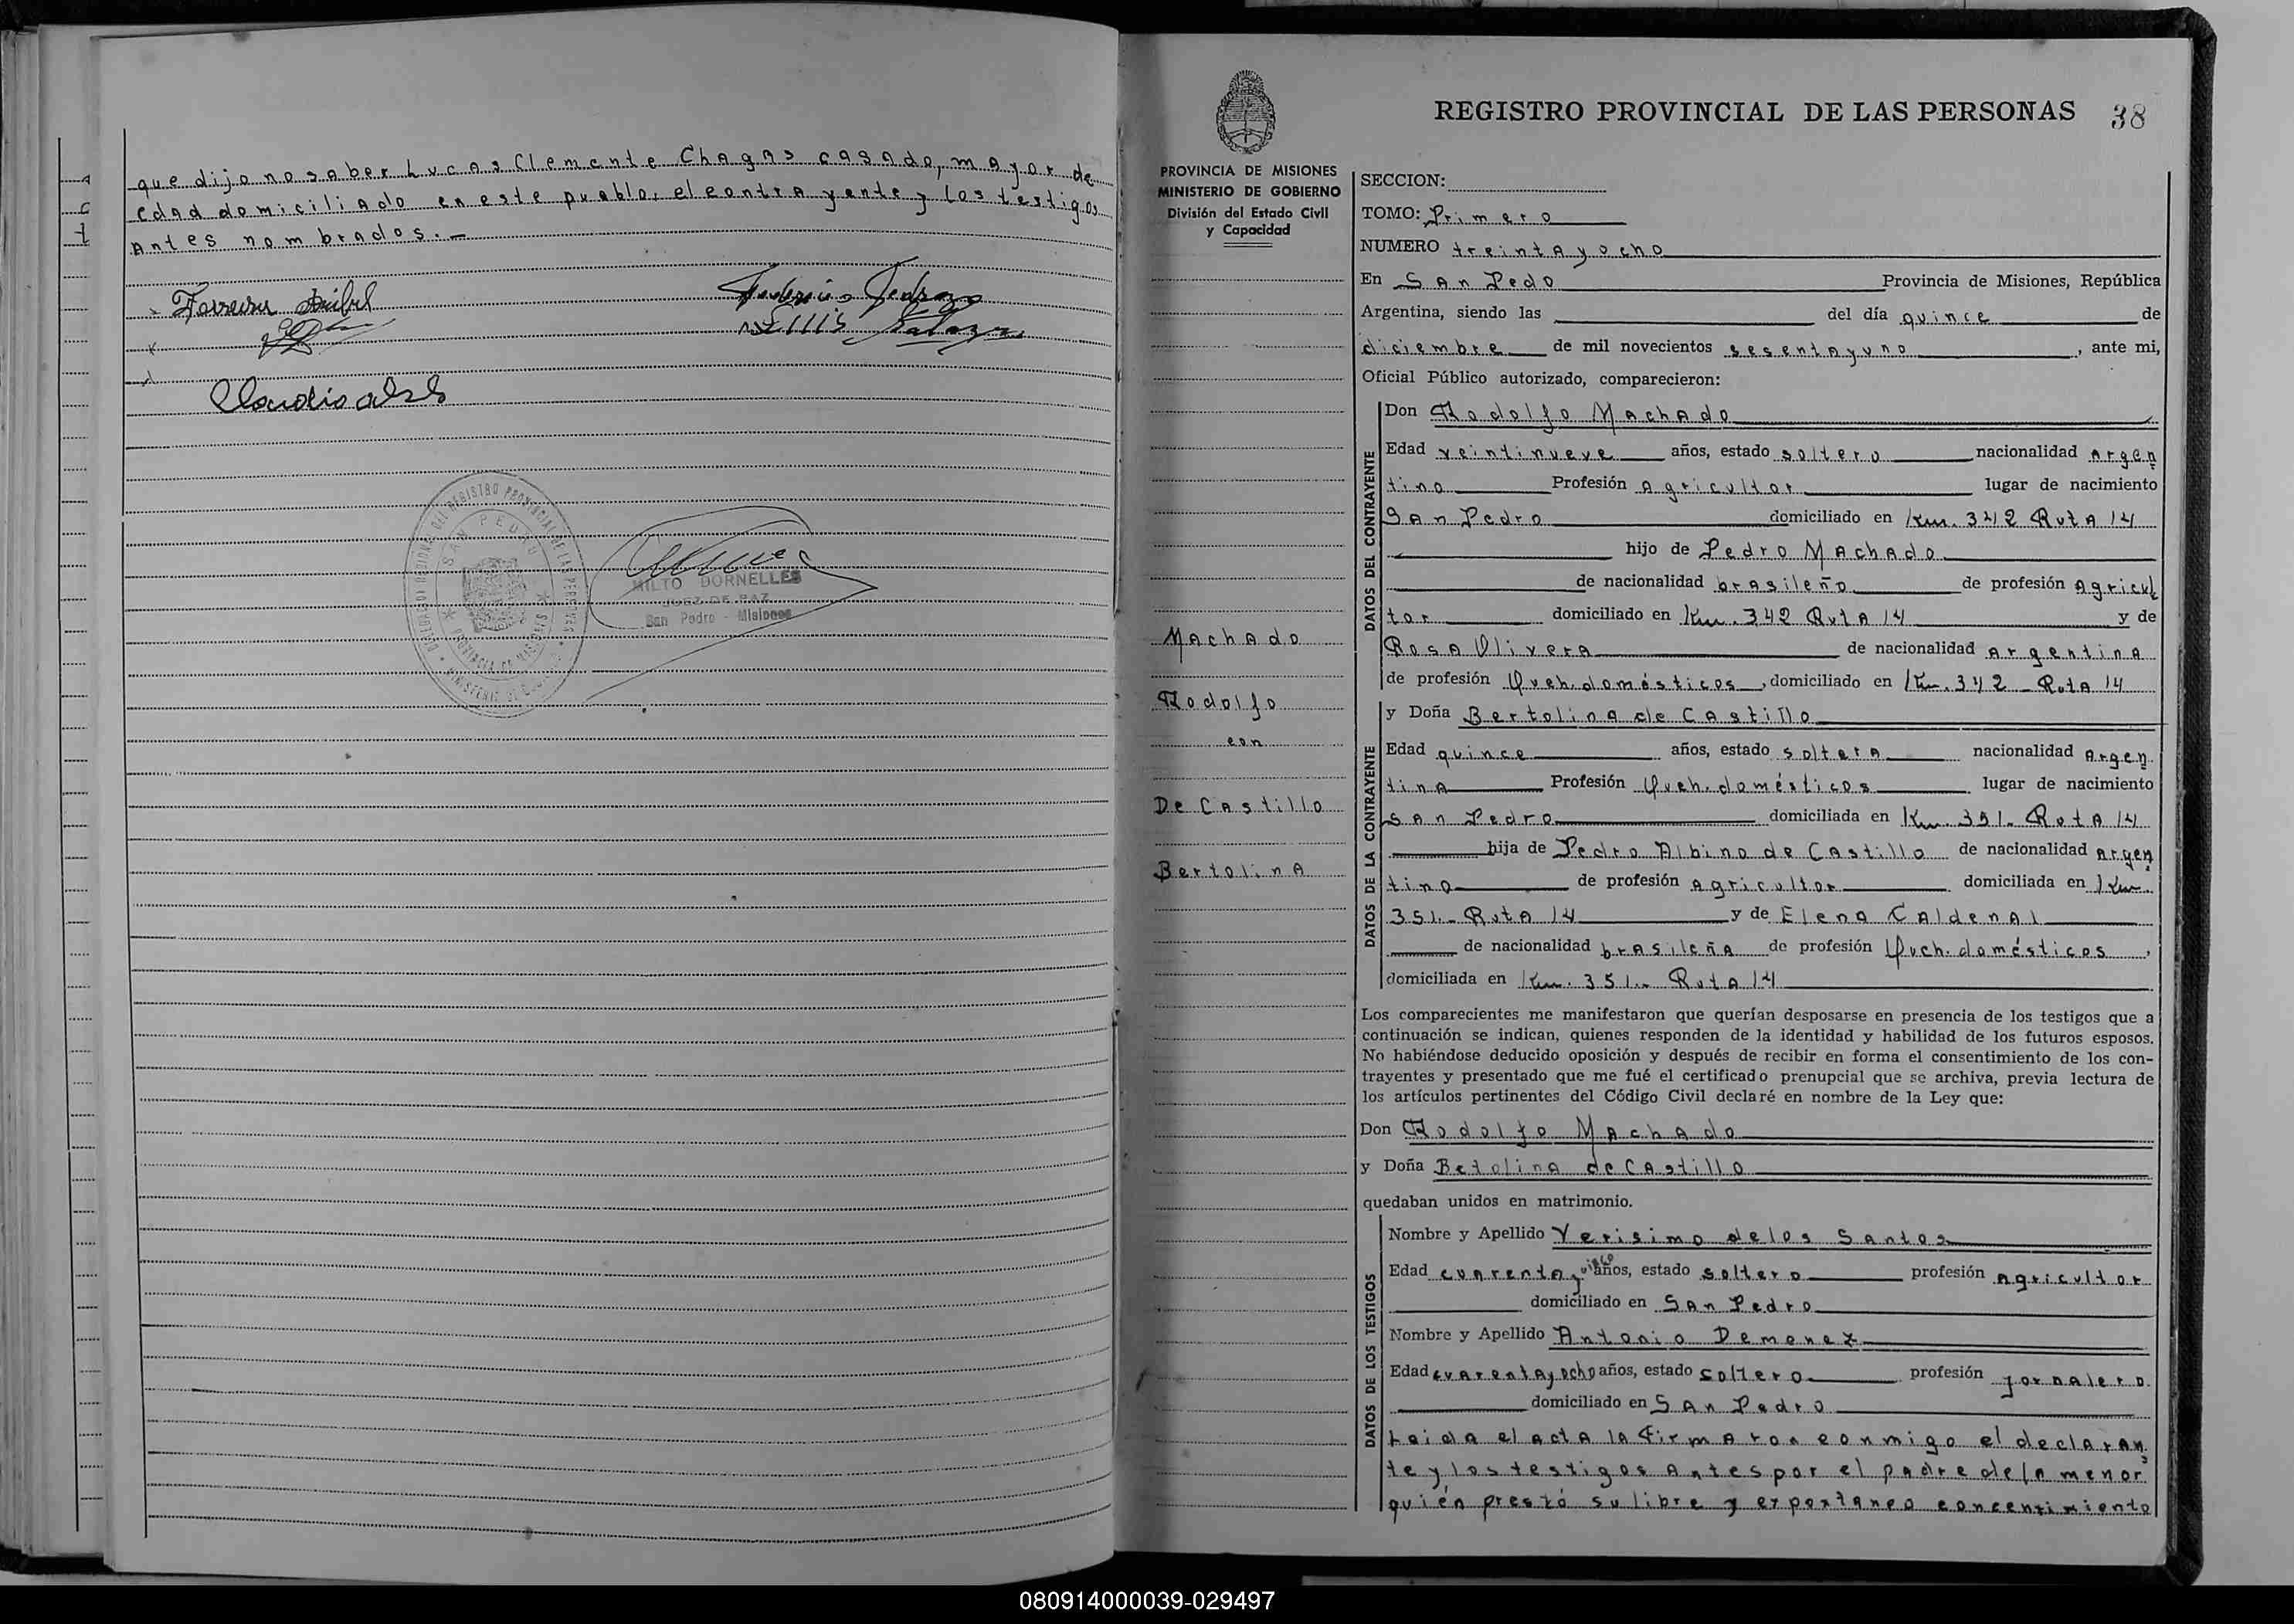 que dijo no saber Lucas Clemente Chagas casado, mayor de
edad domiciliado en este pueblo, el contrayente y los testigos
antes nombrados.-
SAN PEDRO
MILTO DORNELLES
JUEZ DE PAZ
San Pedro - Misiones
REGISTRO PROVINCIAL DE LAS PERSONAS 38
PROVINCIA DE MISIONES
MINISTERIO DE GOBIERNO
División del Estado Civil
y Capacidad
Machado
Rodolfo
con
De Castillo
Bertolina
SECCION:
TOMO: Primero
NUMERO treinta y ocho
En San Pedo Provincia de Misiones, República
Argentina, siendo las del día quince de
diciembre de mil novecientos sesenta y uno, ante mi,
Oficial Público autorizado, comparecieron:
DATOS DEL CONTRAYENTE
Don Rodolfo Machado
Edad veintinueve años, estado soltero nacionalidad Argen
tino Profesión Agricultor lugar de nacimiento
San Pedro domiciliado en Km. 342 Ruta 14
hijo de Pedro Machado
de nacionalidad brasileño de profesión Agricul
tor domiciliado en Km. 342 Ruta 14 y de
Rosa Olivera de nacionalidad argentina
de profesión Queh. domésticos, domiciliado en Km. 342 - Ruta 14
DATOS DE LA CONTRAYENTE
y Doña Bertolina de Castillo
Edad quince años, estado soltera nacionalidad Argen
tina Profesión Queh. domésticos lugar de nacimiento
San Pedro domiciliada en Km. 351- Ruta 14
hija de Pedro Albino de Castillo de nacionalidad argen
tino de profesión agricultor domiciliada en Km.
351- Ruta 14 y de Elena Caldenal
de nacionalidad brasileña de profesión Queh. domésticos,
domiciliada en Km. 351- Ruta 14
Los comparecientes me manifestaron que querían desposarse en presencia de los testigos que a
continuación se indican, quienes responden de la identidad y habilidad de los futuros esposos.
No habiéndose deducido oposición y después de recibir en forma el consentimiento de los con-
trayentes y presentado que me fué el certificado prenupcial que se archiva, previa lectura de
los artículos pertinentes del Código Civil declaré en nombre de la Ley que:
Don Rodolfo Machado
y Doña Betolina de Castillo
quedaban unidos en matrimonio.
DATOS DE LOS TESTIGOS
Nombre y Apellido Verisimo de los Santos
Edad cuarenta y años, estado soltero profesión agricultor
domiciliado en San Pedro
Nombre y Apellido Antonio Demonez
Edad cuarenta y ocho años, estado soltero profesión jornalero
domiciliado en San Pedro
Leida el acta la firmaron conmigo el declaran
te y los testigos antes por el padre de la menor
quién prestó su libre y expontaneo concentimiento
080914000039-029497